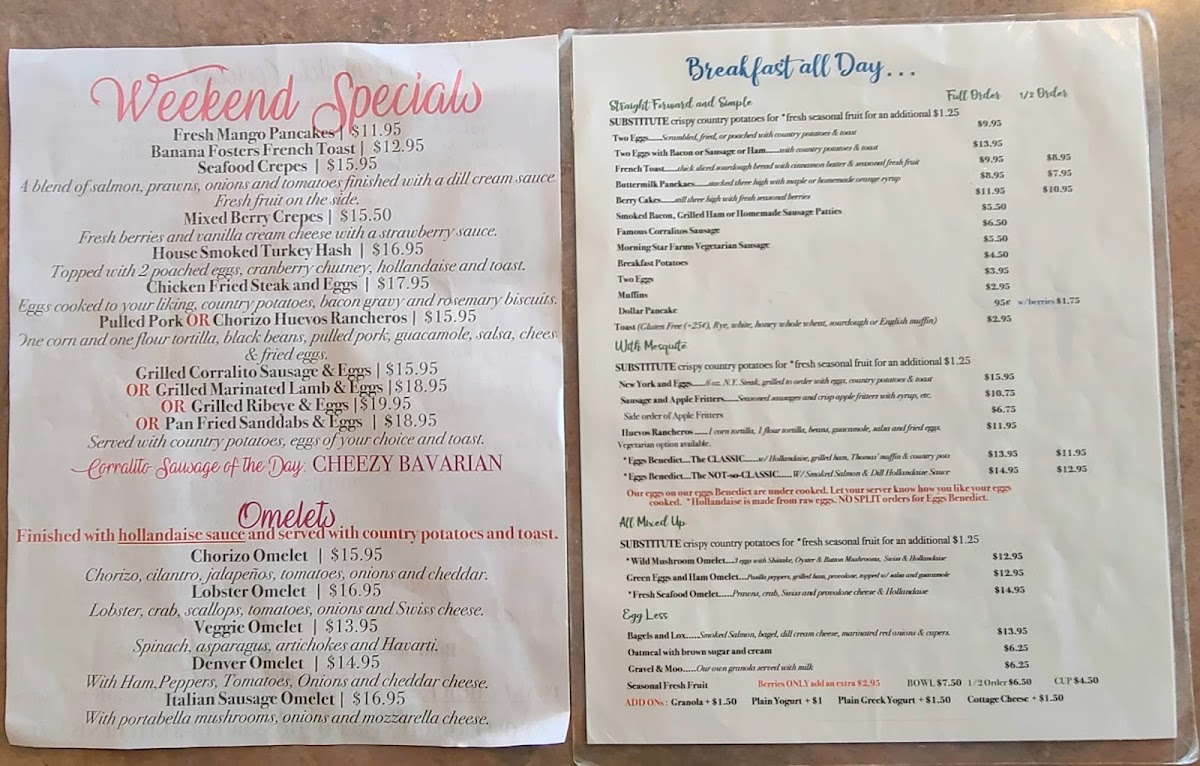 Weekend Specials
Fresh Mango Pancakes | $11.95
Banana Fosters French Toast | $12.95
Seafood Crepes | $15.95
A blend of salmon, prawns, onions and tomatoes finished with a dill cream sauce
Fresh fruit on the side.
Mixed Berry Crepes | $15.50
Fresh berries and vanilla cream cheese with a strawberry sauce.
House Smoked Turkey Hash | $16.95
Topped with 2 poached eggs, cranberry chutney, hollandaise and toast.
Chicken Fried Steak and Eggs | $17.95
Eggs cooked to your liking, country potatoes, bacon gravy and rosemary biscuits.
Pulled Pork OR Chorizo Huevos Rancheros | $15.95
One corn and one flour tortilla, black beans, pulled pork, guacamole, salsa, chees
& fried eggs.
Grilled Corralito Sausage & Eggs | $15.95
OR Grilled Marinated Lamb & Eggs |$18.95
OR Grilled Ribeye & Eggs |$19.95
OR Pan Fried Sanddabs & Eggs | $18.95
Served with country potatoes, eggs of your choice and toast.
Corralito Sausage of the Day: CHEEZY BAVARIAN
Omelets
Finished with hollandaise sauce and served with country potatoes and toast.
Chorizo Omelet | $15.95
Chorizo, cilantro, jalapeños, tomatoes, onions and cheddar.
Lobster Omelet | $16.95
Lobster, crab, scallops, tomatoes, onions and Swiss cheese.
Veggie Omelet | $13.95
Spinach, asparagus, artichokes and Havarti.
Denver Omelet | $14.95
With Ham,Peppers, Tomatoes, Onions and cheddar cheese.
Italian Sausage Omelet | $16.95
With portabella mushrooms, onions and mozzarella cheese.
Breakfast all Day...
Straight Forward and Simple Full Order 1/2 Order
SUBSTITUTE crispy country potatoes for *fresh seasonal fruit for an additional $1.25
Two Eggs.....Scrambled, fried, or poached with country potatoes & toast $9.95
Two Eggs with Bacon or Sausage or Ham.....with country potatoes & toast $13.95
French Toast.....thick sliced sourdough bread with cinnamon butter & seasonal fresh fruit $9.95 $8.95
Buttermilk Panckaes.....stacked three high with maple or homemade orange syrup $8.95 $7.95
Berry Cakes.....still three high with fresh seasonal berries $11.95 $10.95
Smoked Bacon, Grilled Ham or Homemade Sausage Patties $5.50
Famous Corralitos Sausage $6.50
Morning Star Farms Vegetarian Sausage $5.50
Breakfast Potatoes $4.50
Two Eggs $3.95
Muffins $2.95
Dollar Pancake 95¢ w/berries $1.75
Toast (Gluten Free (+25¢), Rye, white, honey whole wheat, sourdough or English muffin) $2.95
With Mesquite
SUBSTITUTE crispy country potatoes for *fresh seasonal fruit for an additional $1.25
New York and Eggs.....6 oz. N.Y. Steak, grilled to order with eggs, country potatoes & toast $15.95
Sausage and Apple Fritters.....Seasoned sausages and crisp apple fritters with syrup, etc. $10.75
Side order of Apple Fritters $6.75
Huevos Rancheros .....1 corn tortilla, 1 flour tortilla, beans, guacamole, salsa and fried eggs. $11.95
Vegetarian option available.
*Eggs Benedict...The CLASSIC.....w/ Hollandaise, grilled ham, Thomas' muffin & country pots $13.95 $11.95
*Eggs Benedict...The NOT-so-CLASSIC.....W/ Smoked Salmon & Dill Hollandaise Sauce $14.95 $12.95
Our eggs on our eggs Benedict are under cooked. Let your server know how you like your eggs
cooked. *Hollandaise is made from raw eggs. NO SPLIT orders for Eggs Benedict.
All Mixed Up
SUBSTITUTE crispy country potatoes for *fresh seasonal fruit for an additional $1.25
*Wild Mushroom Omelet...3 eggs with Shiitake, Oyster & Button Mushrooms, Swiss & Hollandaise $12.95
Green Eggs and Ham Omelet...Pasilla peppers, grilled ham, provolone, topped w/ salsa and guacamole $12.95
*Fresh Seafood Omelet.....Prawns, crab, Swiss and provolone cheese & Hollandaise $14.95
Egg Less
Bagels and Lox.....Smoked Salmon, bagel, dill cream cheese, marinated red onions & capers. $13.95
Oatmeal with brown sugar and cream $6.25
Gravel & Moo.....Our own granola served with milk $6.25
Seasonal Fresh Fruit Berries ONLY add an extra $2.95 BOWL $7.50 1/2 Order $6.50 CUP $4.50
ADD ONs : Granola + $1.50 Plain Yogurt + $1 Plain Greek Yogurt + $1.50 Cottage Cheese + $1.50